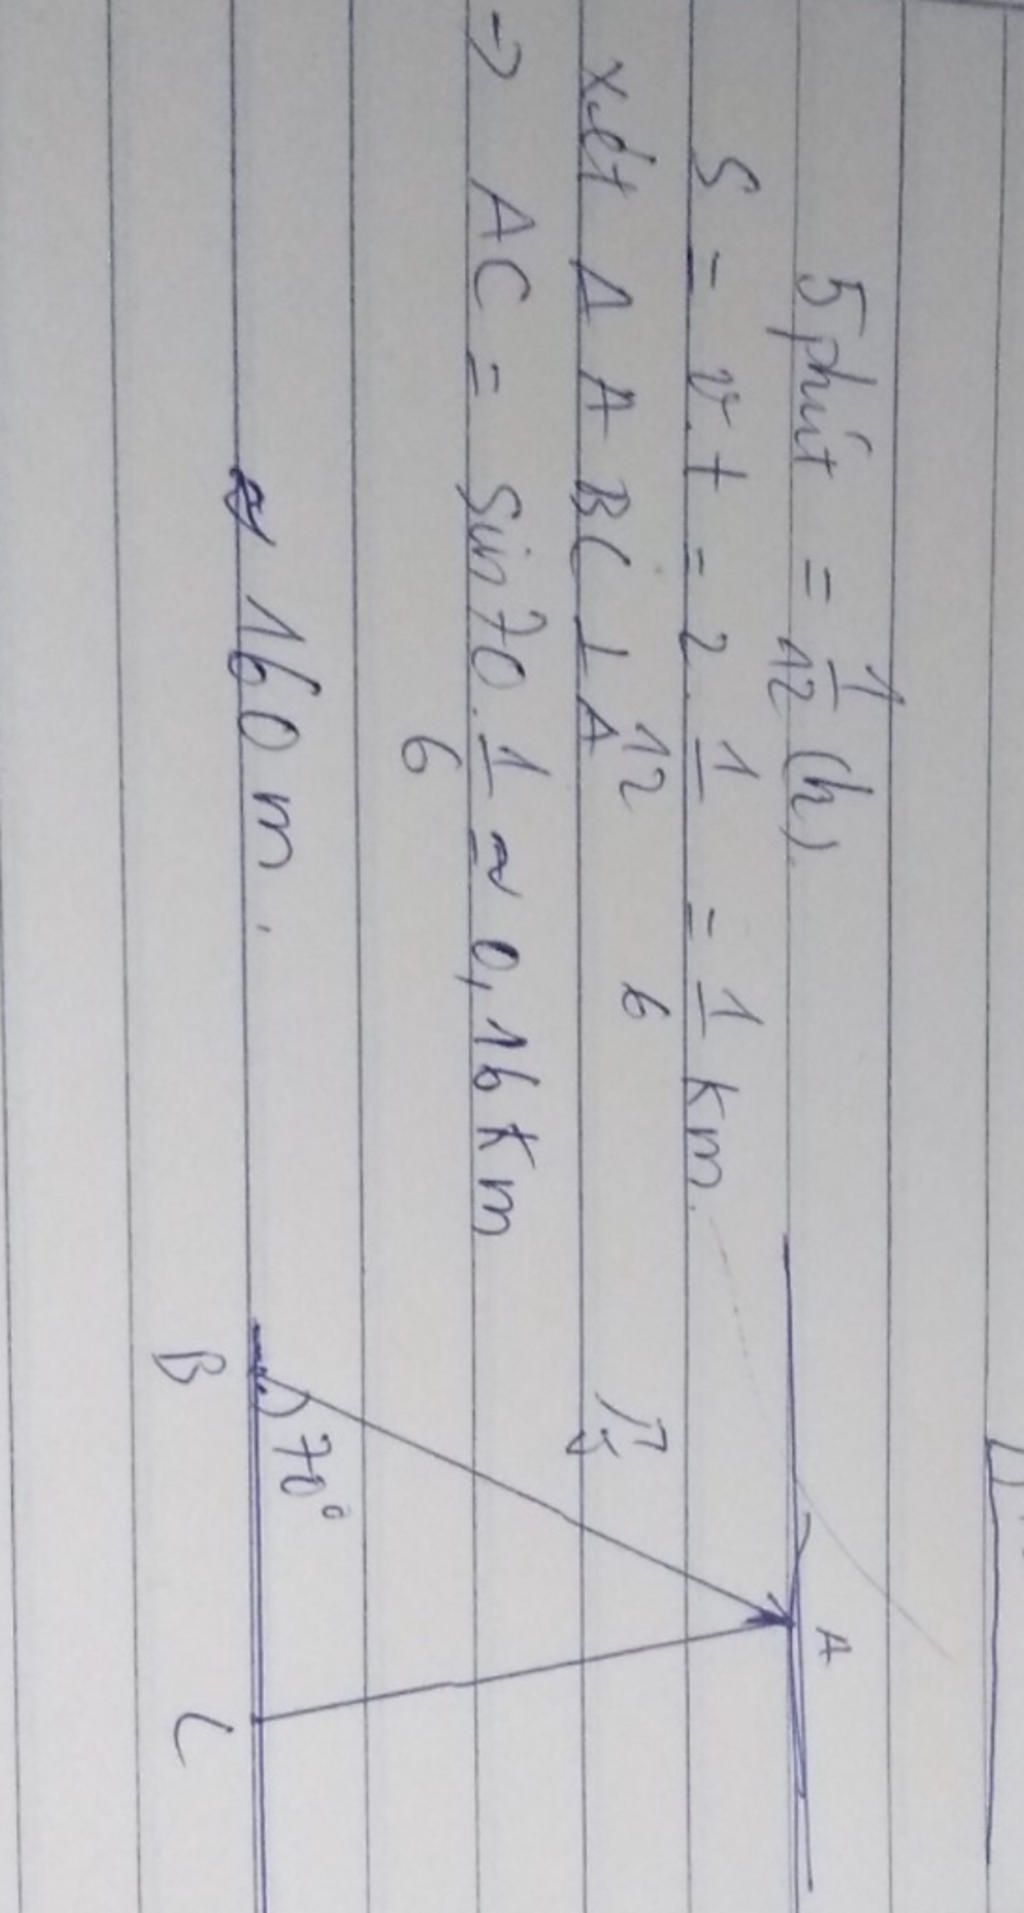 5 phút = 1/12 (h).
S = v.t = 2. 1/12 = 1/6 km.
xét Δ ABC ⊥ A
→ AC = Sin70. 1/6 ≈ 0,16 km
≈ 160 m.
A
B
70°
C